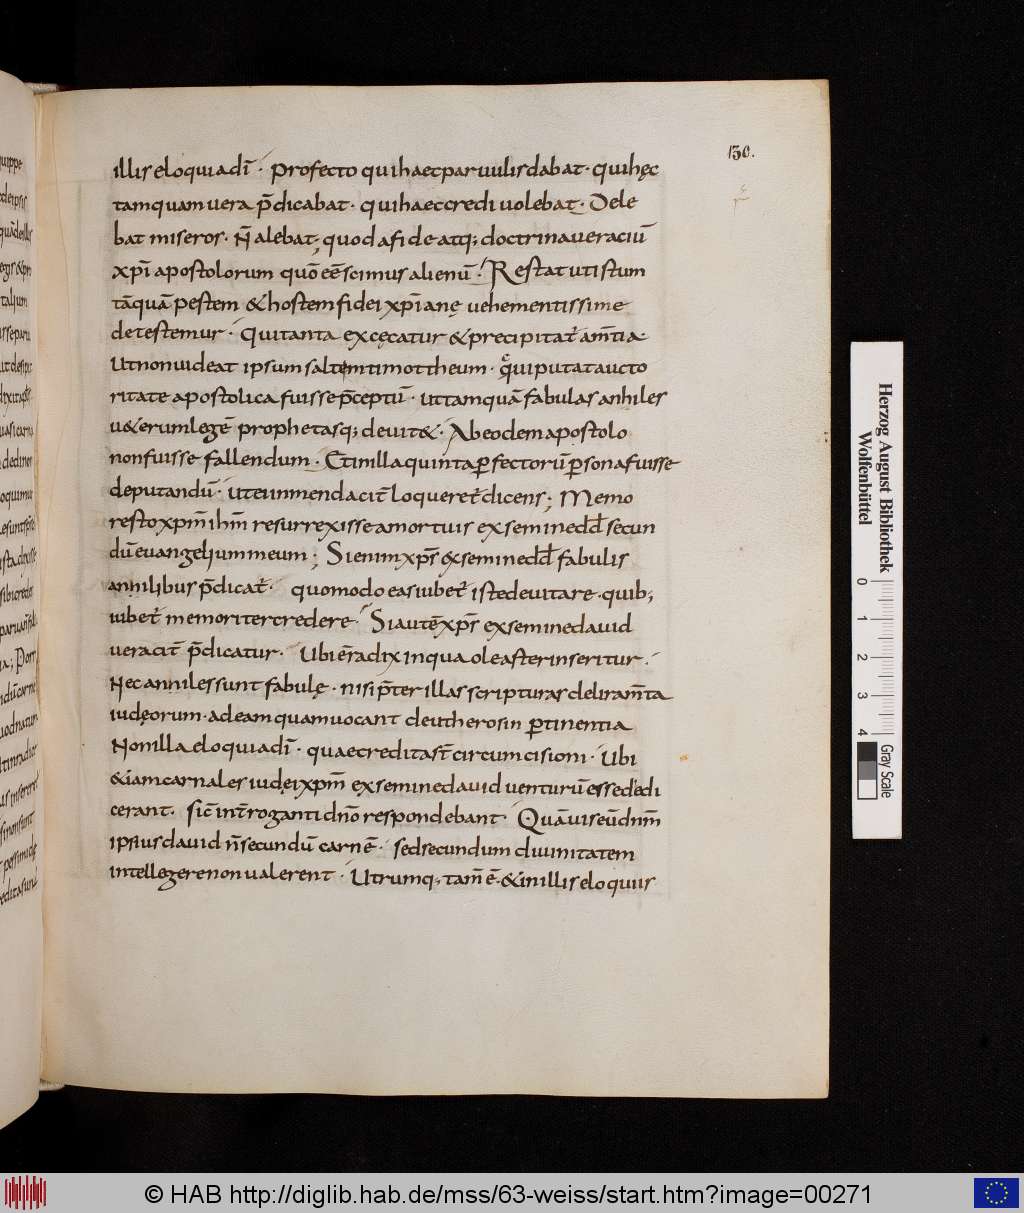 130.
illis eloquia dī · Profecto qui haec paruulis dabat · qui hęc
tamquam uera p̄dicabat · qui haec credi uolebat · Dele
bat miseros · N̄ alebat; quod a fide atq; doctrina ueraciū
xp̄i apostolorum quō eē scimus alienū · Restat ut istum
tāquā pestem & hostem fidei xp̄ianę uehementissime
detestemur · Qui tanta excęcatur & precipitat̄ am̄tia
Ut non uideat ipsum saltem timottheum · qui putat aucto
ritate apostolica fuisse p̄ceptū · ut tamquā fabulas anhiles
u&erum legē prophetasq; deuit& · Ab eodem apostolo
non fuisse fallendum · Et in illa quinta ꝑfectorū ꝑsona fuisse
deputandū · ut ei inmendacit̄ loqueret̄ dicens; Memo
resto xpm̄ ihm̄ resurrexisse a mortuis ex semine dd̄ secun
dū euangelium meum; Si enim xp̄s ex semine dd̄ fabulis
annilibus p̄dicat̄ · quomodo eas iubet̄ iste deuitare · quib;
iubet̄ memoriter credere · Si autē xp̄s ex semine dauid
ueracit̄ p̄dicatur · Ubi ē radix in qua oleaster inseritur ·
Nec anniles sunt fabulę · nisi p̄ter illas scripturas deliram̄ta
iudęorum · ad eam quam uocant deutherosin ꝑtinentia
Non illa eloquia dī · quae credita st̄ circumcisioni · Ubi
& iam carnales iudęi xpm̄ ex semine dauid uenturū esse dedi
cerant · sic̄ int̄roganti dn̄o respondebant · Quāuis eūd dnm̄
ipsius dauid n̄ secundū carnē · sed secundum diuinitatem
intellegere non ualerent · Utrumq; tam̄ ē · & in illis eloquiis
Herzog August Bibliothek
Wolfenbüttel
0 1 2 3 4
Gray Scale
© HAB http://diglib.hab.de/mss/63-weiss/start.htm?image=00271